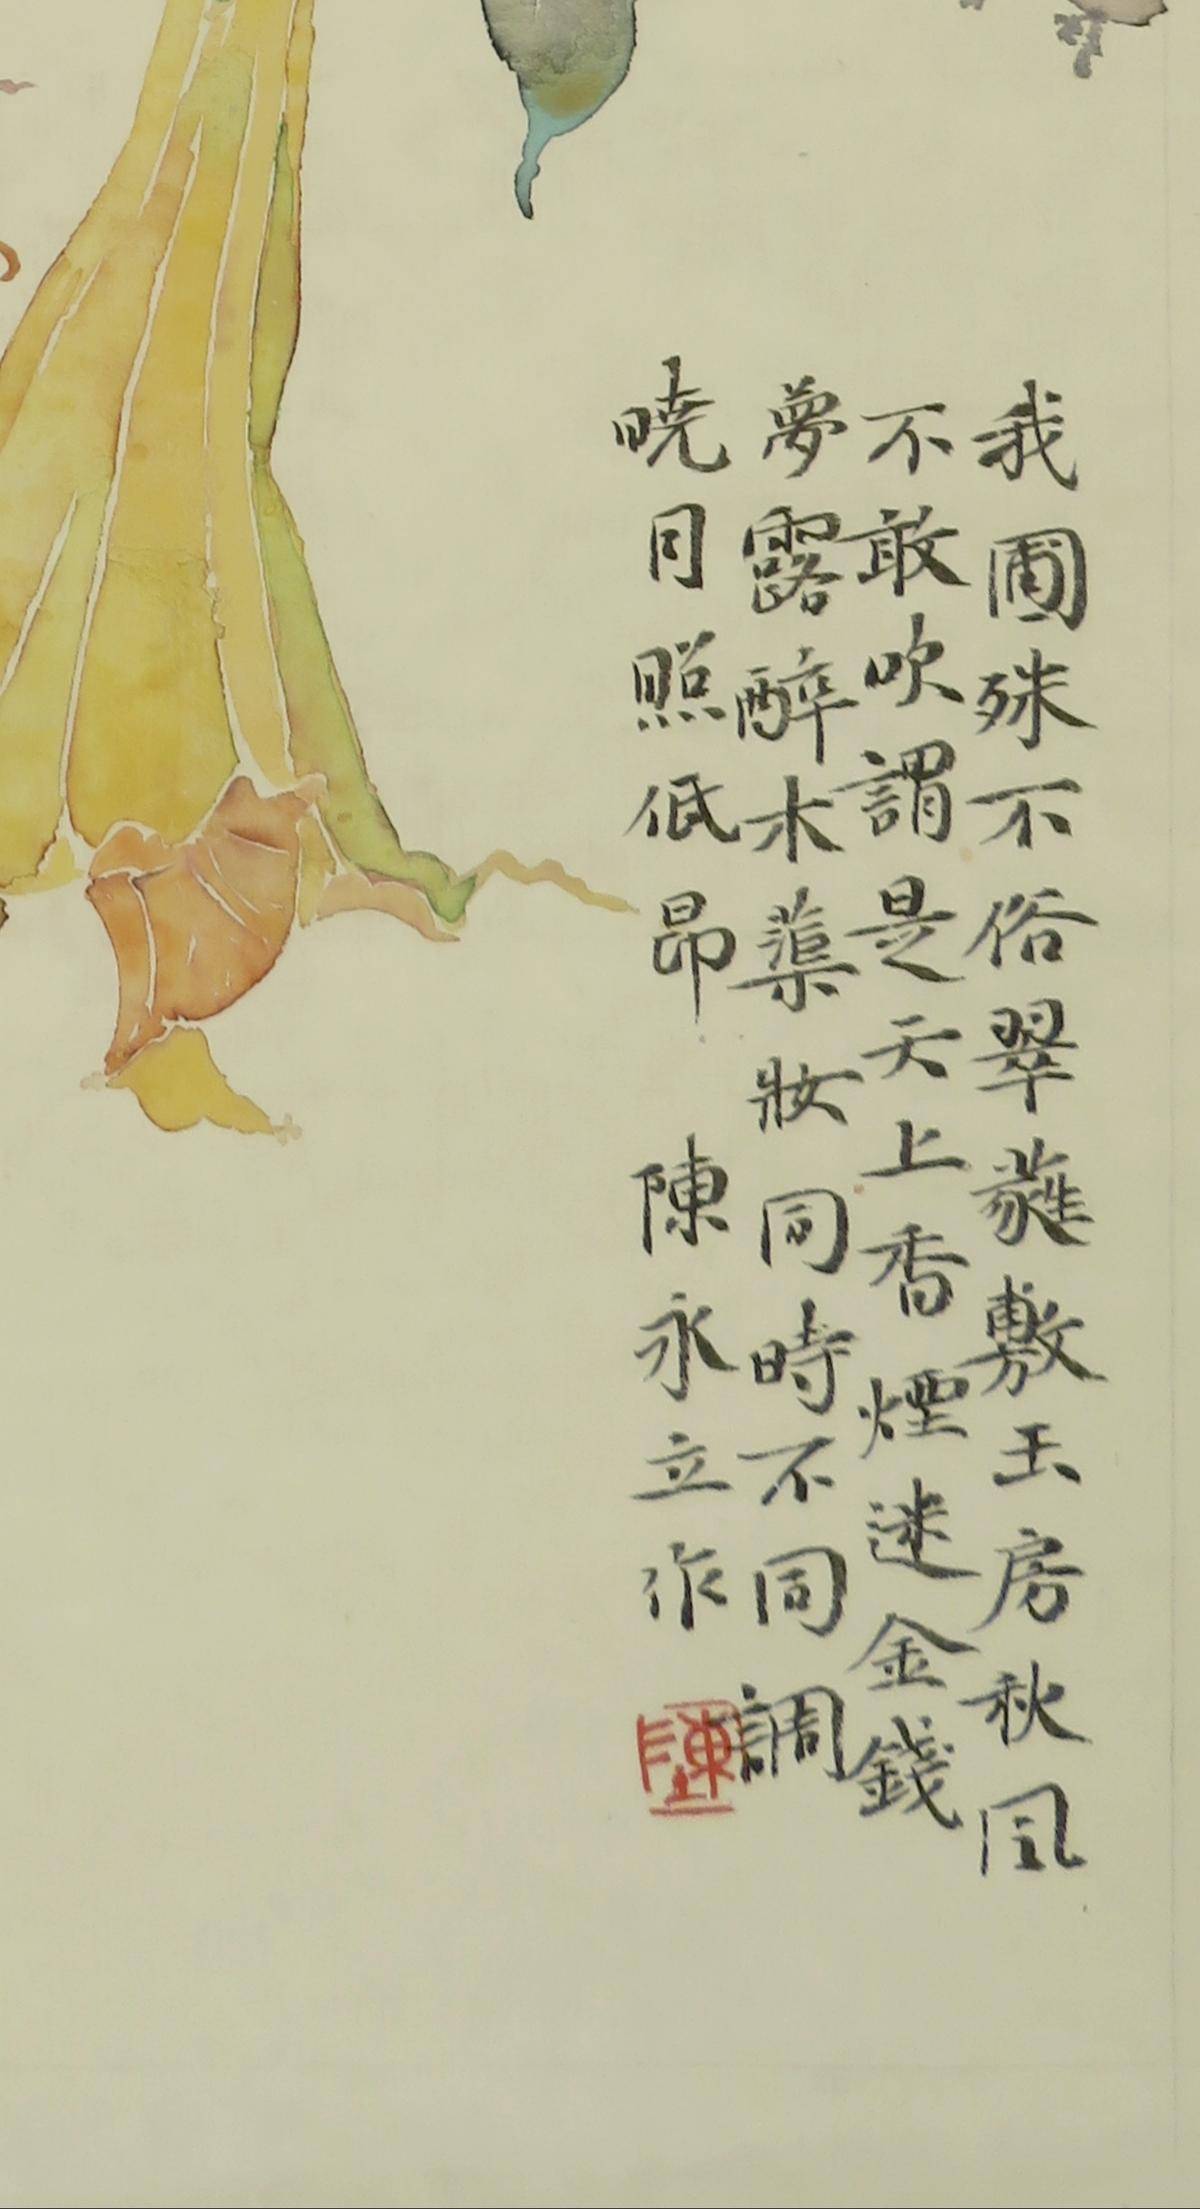 我圃殊不俗翠蕤敷玉房秋风
不敢吹謂是天上香煙迷金錢
夢露醉木蕖妝同時不同調
暁月照低昂 陳永立作
陳